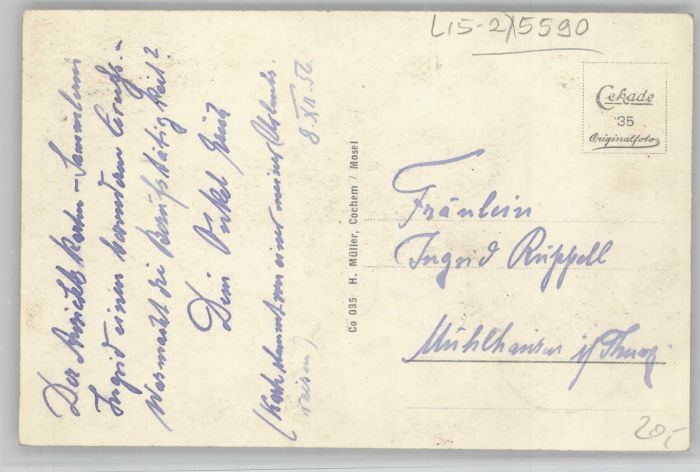 Der Ansichtskarten-Sammlerin
Ingrid einen besonderen Gruß.-
Was macht die Berufstätigkeit?
Dein Onkel
(Karte stammt von einer meiner Urlaubs-
reisen)
8.XII.56.
Co 035 H. Müller, Cochem / Mosel
L15-2)5590
Cekade
35
Originalfoto
Fräulein
Ingrid Rüppell
Mühlhausen i/ Thür.
20,-